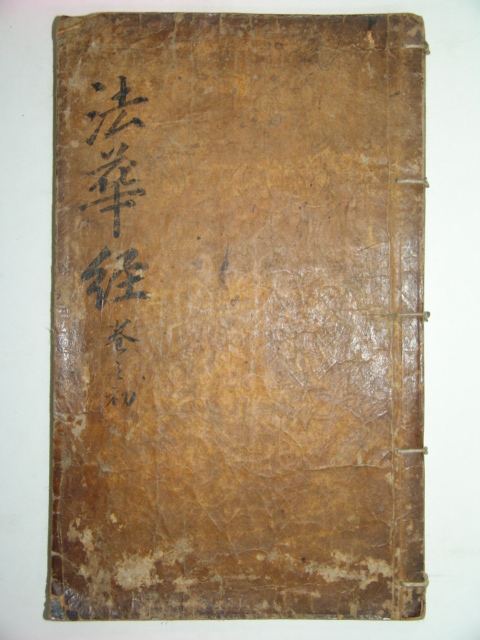 法華经
卷之初